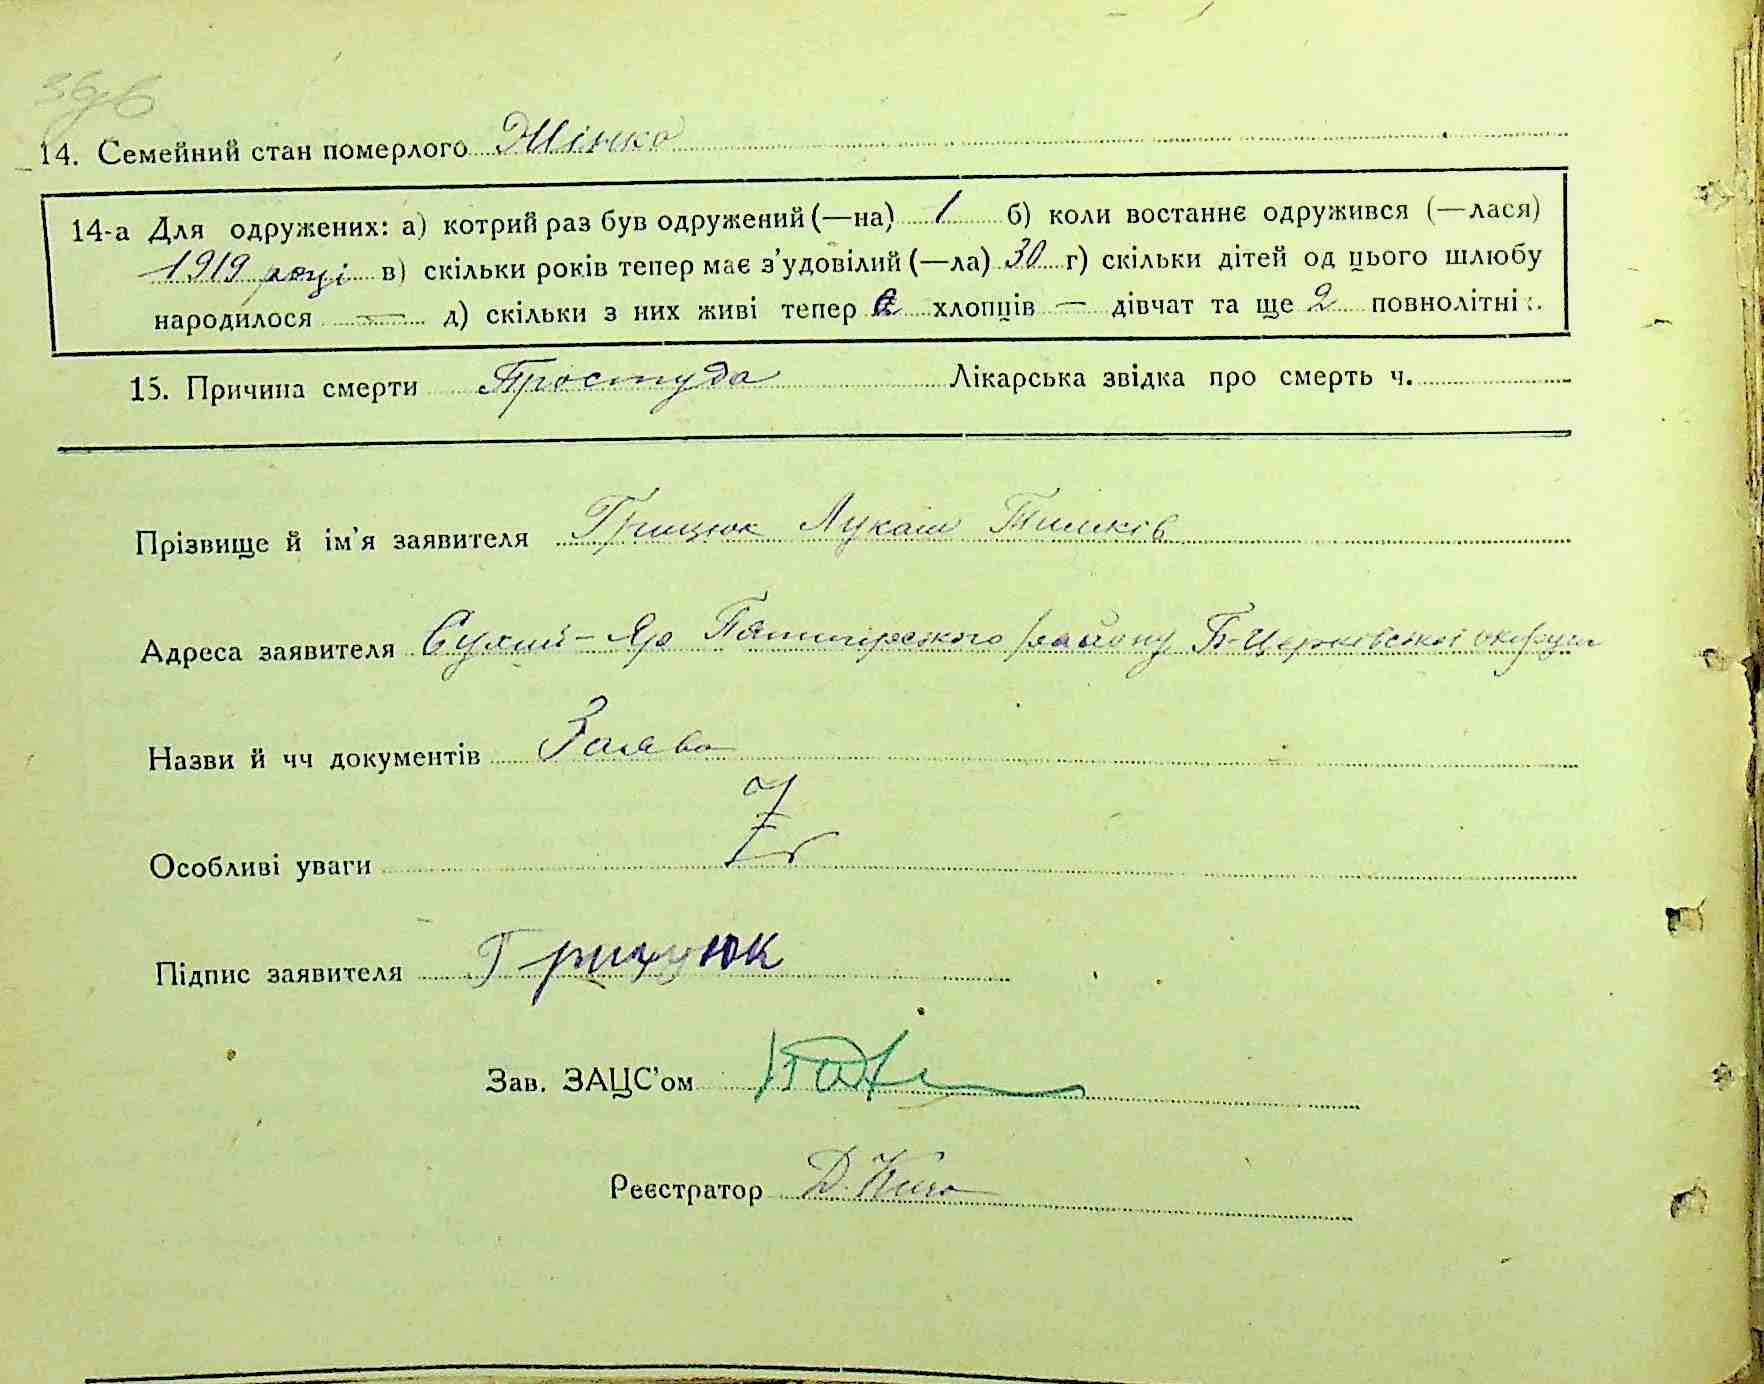 14. Семейний стан померлого Жінка
14-а Для одружених: а) котрий раз був одружений (—на) 1 б) коли востаннє одружився (—лася)
1919 році в) скільки років тепер має з'удовілий (—ла) 30 г) скільки дітей од цього шлюбу
народилося — д) скільки з них живі тепер хлопців — дівчат та ще 2 повнолітні
15. Причина смерти Простуда Лікарська звідка про смерть ч.
Прізвище й ім'я заявителя Грицюк Лукаш
Адреса заявителя Сухий-Яр Пятигорського району Б-Церківської округи
Назви й чч документів Заява
Особливі уваги
Підпис заявителя Грицюк
Зав. ЗАЦС'ом
Реєстратор Д.